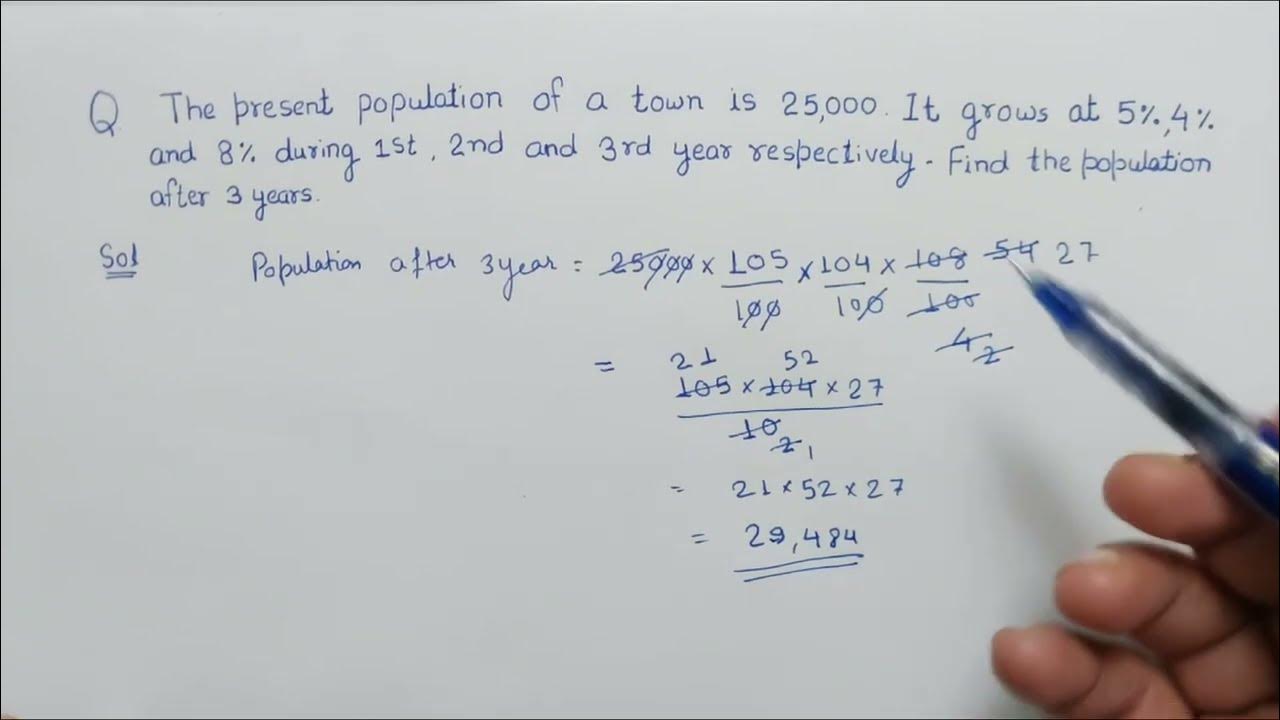 Q The present population of a town is 25,000. It grows at 5%, 4%
and 8% during 1st, 2nd and 3rd year respectively. Find the population
after 3 years.
Sol Population after 3 year = 25000 × 105/100 × 104/100 × 108/100 54 27
4 2
= 21 52
105 × 104 × 27
10 2 1
= 21 × 52 × 27
= 29,484